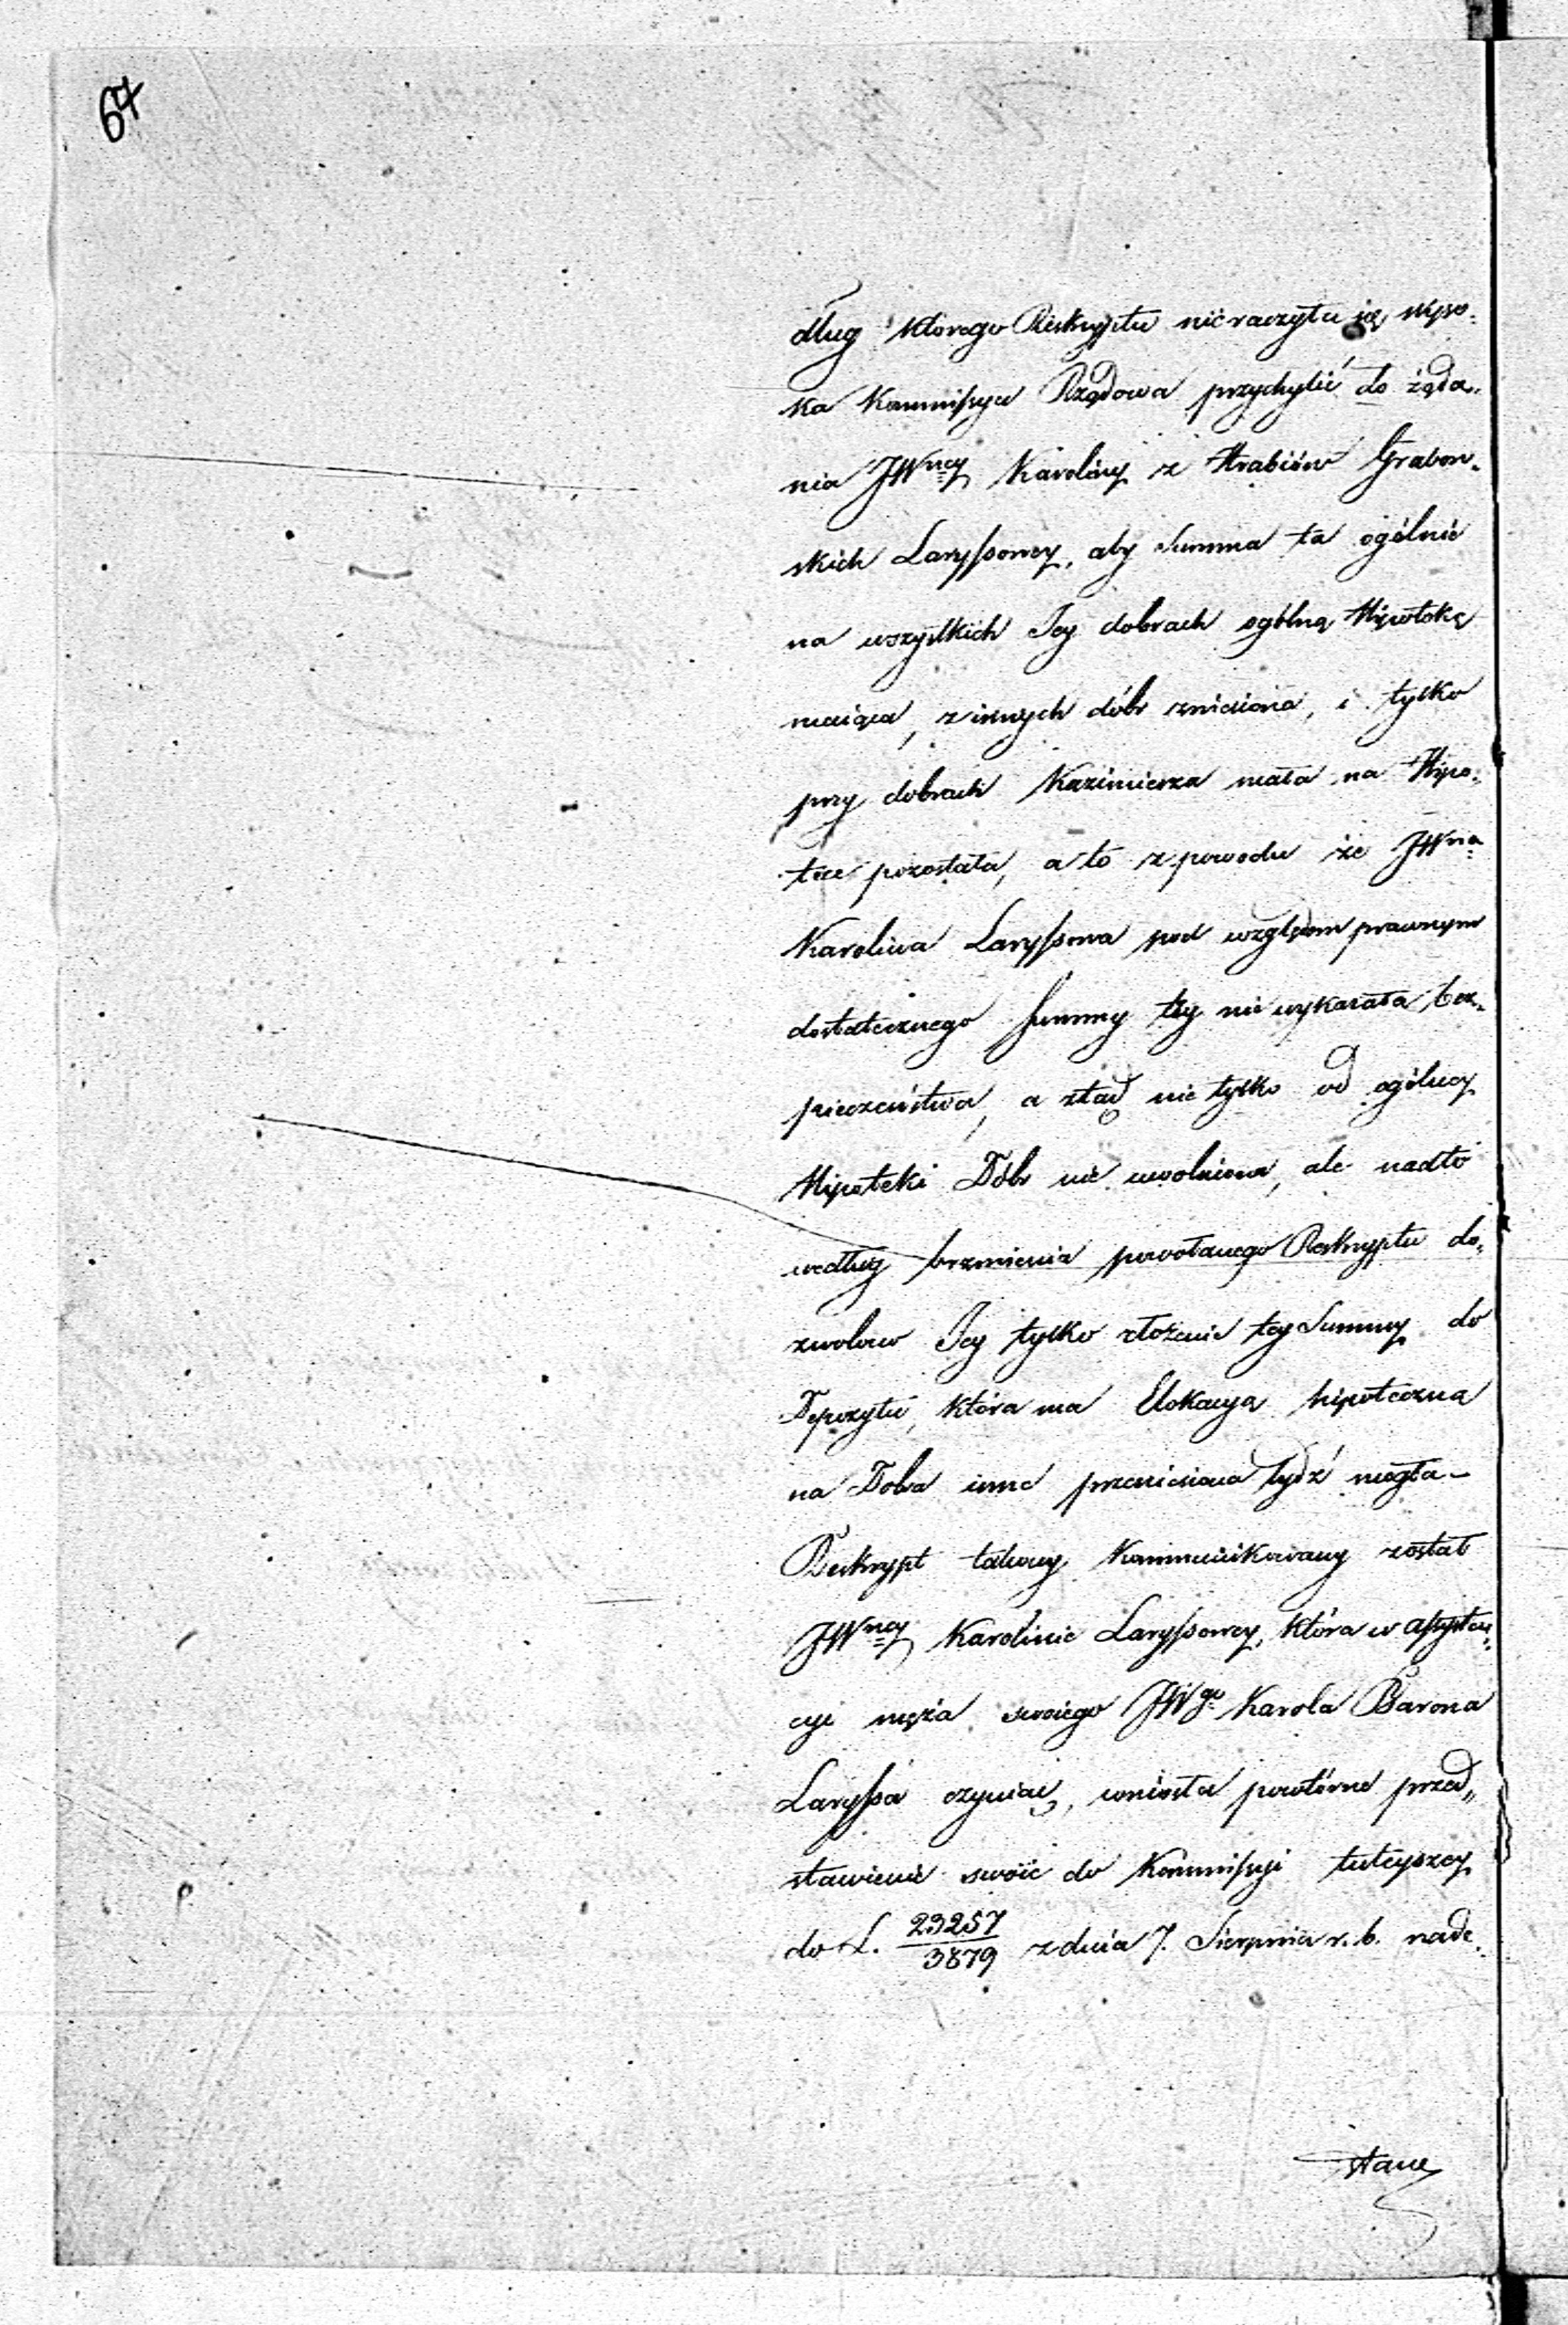 67
dług którego Reskryptu nieraczyła się wyso-
ka Kommissya Rządowa przychylić do żąda-
nia JWney Karoliny z Hrabiów Grabow-
skich Laryssowey, aby Summa ta ogólnie
na wszystkich Jey dobrach ogólną Hypotekę
maiąca, z innych dóbr zniesiona, i tylko
przy dobrach Kazimierza mała na Hipo-
tece pozostała, a to z powodu że JWna
Karolina Laryssowa pod względem prawnym
dostatecznego Summy tey nie wykazała bez-
pieczeństwa, a ztąd nie tylko od ogólney
Hipoteki Dóbr nie uwolniona, ale nadto
według brzmienia powołanego Reskryptu do-
zwolono Jey tylko złożenie tey Summy do
Depozytu, która ma Elokacya hipoteczna
na Dobra inne przeniesiona bydź mogła –
Reskrypt takowy Kommunikowany został
JWney Karolinie Laryssowey, która w assysten-
cyi męża swoiego JWgo Karola Barona
Laryssa czyniąc, wniosła powtórne przed-
stawienie swoie do Kommissyi tuteyszey
do L. 23257/3879 z dnia 7. Sierpnia r. b. nade-
słane